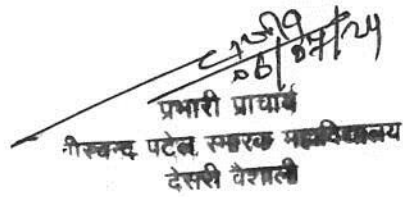 06/07/24
प्रभारी प्राचार्य
पटेल स्मारक महाविद्यालय
देसरी वैशाली